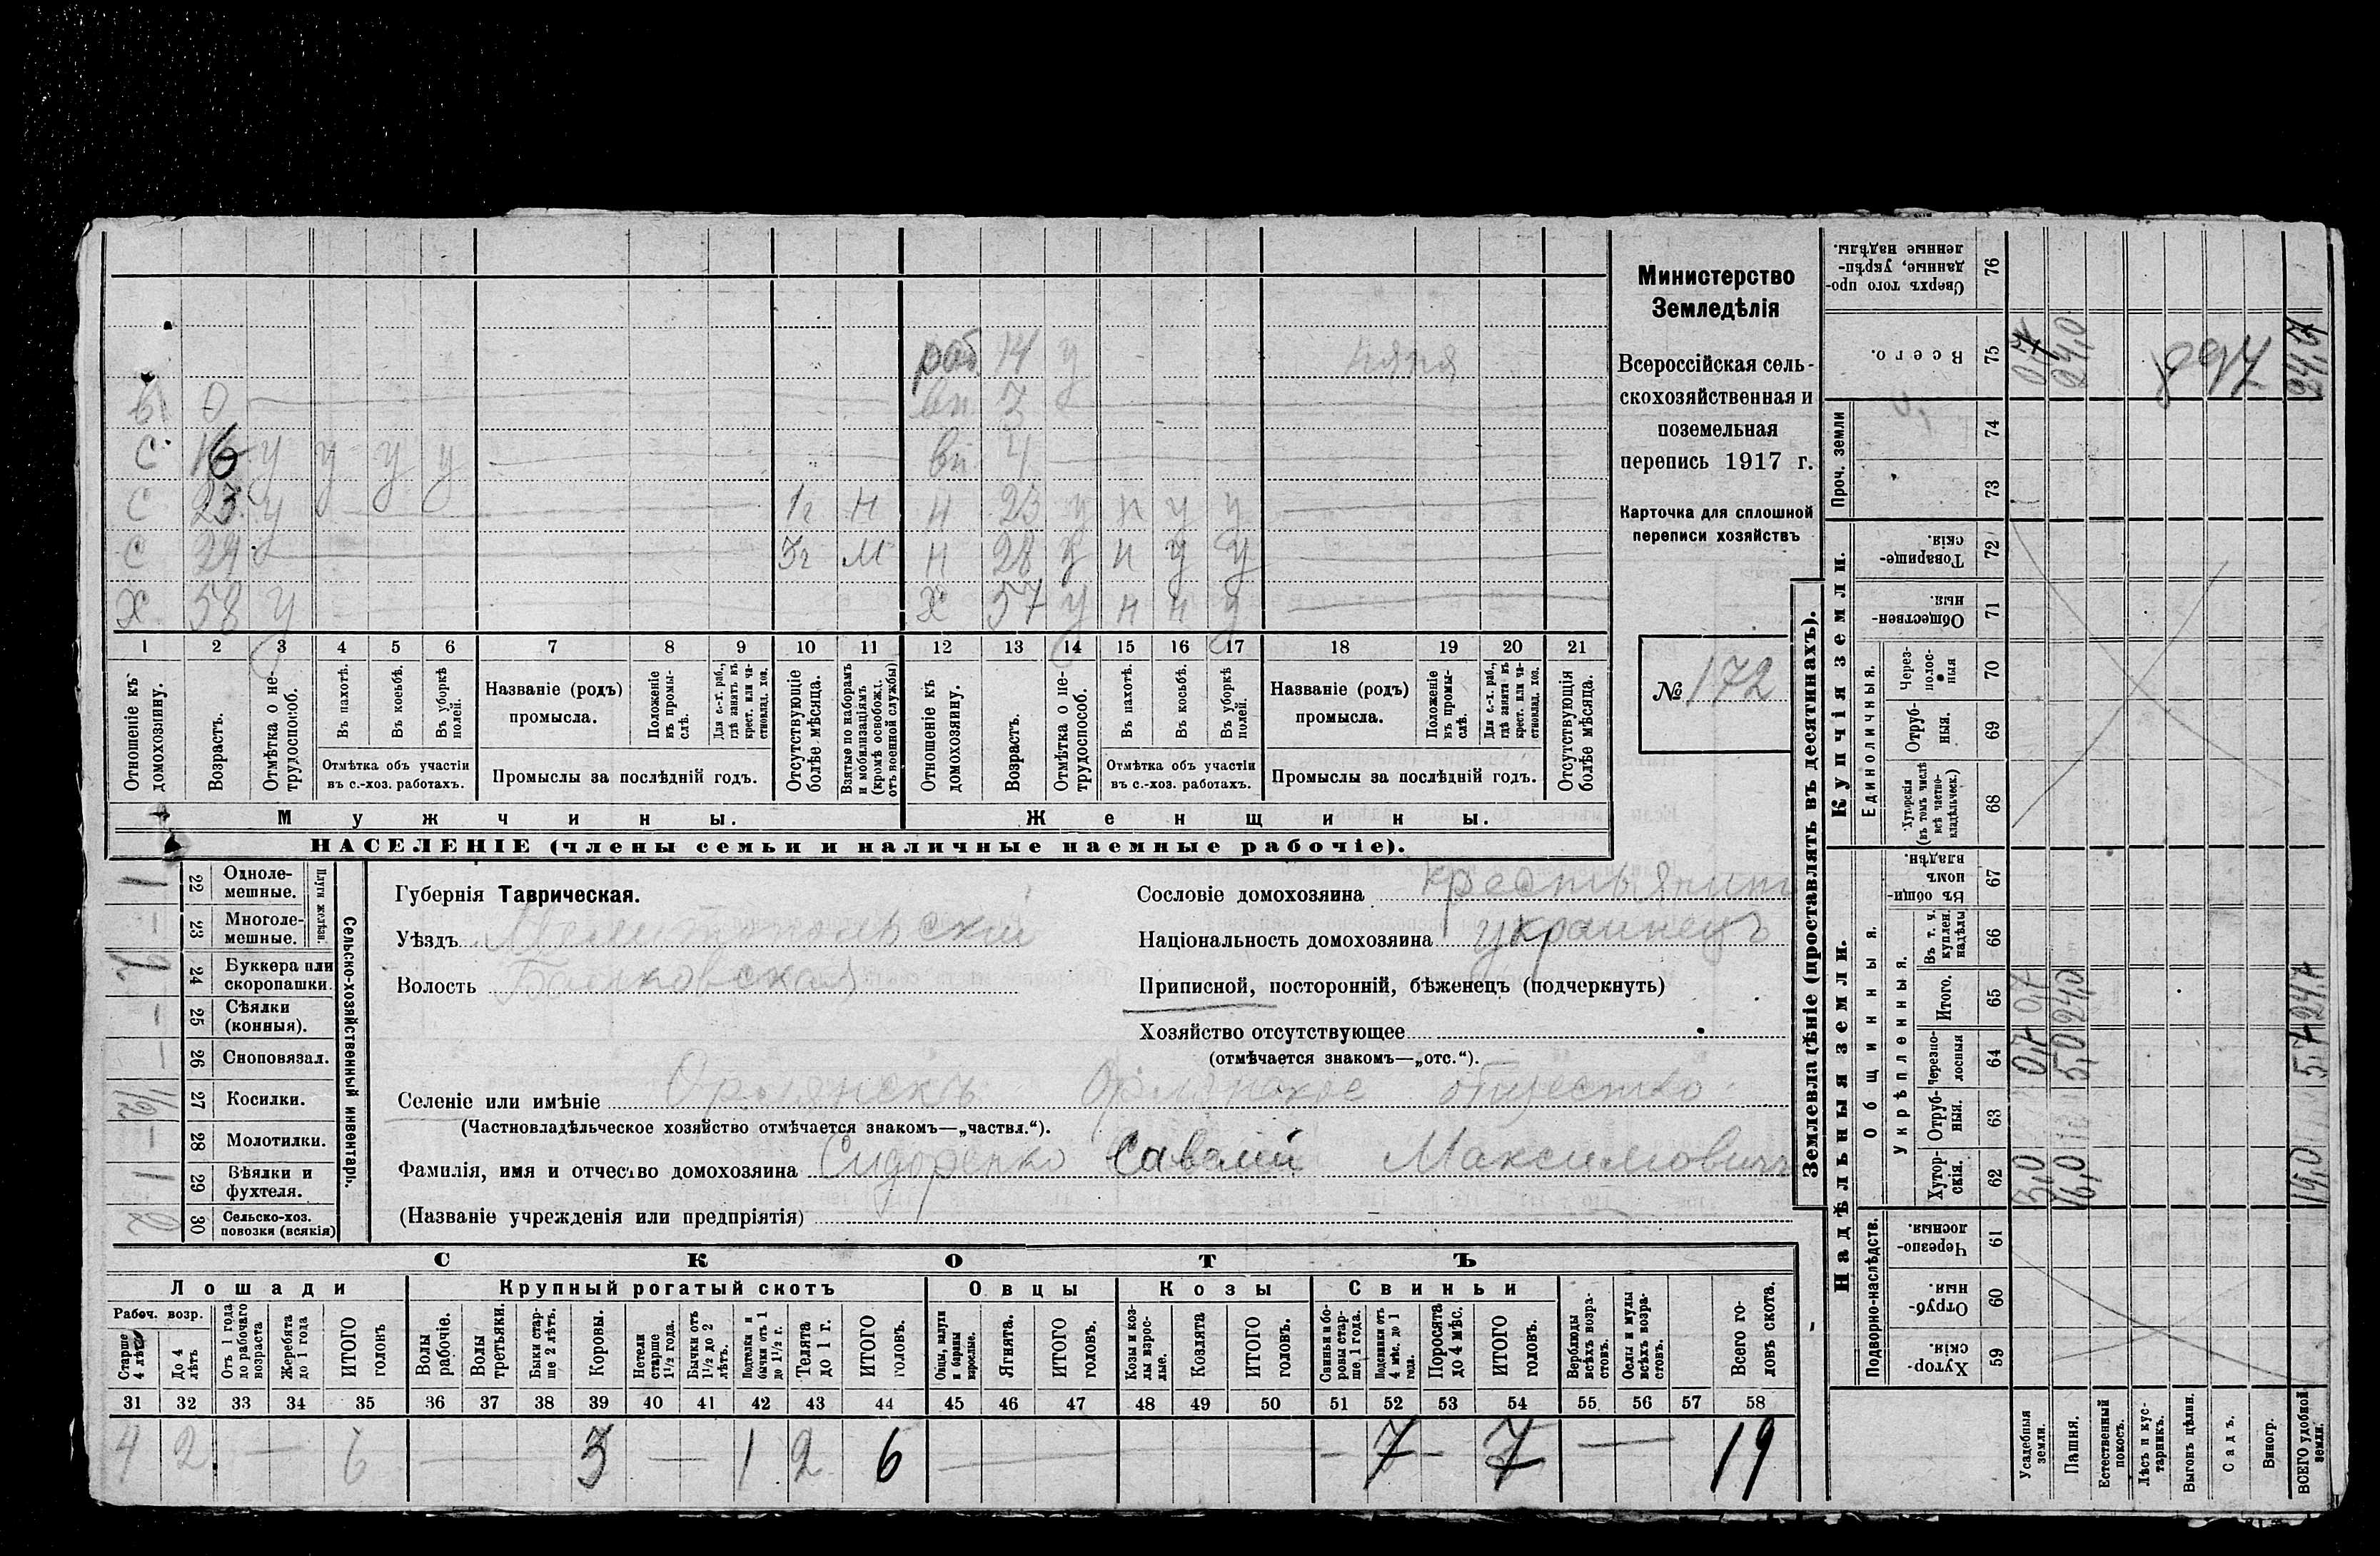 раб. 14 у няня
вн 0 вн. 3
С 16 у у у у вн. 4
С 23 у 1г н н 23 у п у у
С 29 3г м н 28 у п у у
Х 58 у Х 57 у н н у
1 2 3 4 5 6 7 8 9 10 11 12 13 14 15 16 17 18 19 20 21
Отношеніе къ домохозяину.
Возрастъ.
Отмѣтка о не-трудоспособ.
Въ пахотѣ.
Въ косьбѣ.
Въ уборкѣ полей.
Отмѣтка объ участіи въ с.-хоз. работахъ.
Названіе (родъ) промысла.
Положеніе въ промы-слѣ.
Для с.-х. раб., гдѣ занятъ въ крест. или ча-стновлад. хоз.
Промыслы за послѣдній годъ.
Отсутствующіе болѣе мѣсяца.
Взятые по наборамъ и мобилизаціямъ (кромѣ освобожд. отъ военной службы)
Отношеніе къ домохозяину.
Возрастъ.
Отмѣтка о не-трудоспособ.
Въ пахотѣ.
Въ косьбѣ.
Въ уборкѣ полей.
Отмѣтка объ участіи въ с.-хоз. работахъ.
Названіе (родъ) промысла.
Положеніе въ промы-слѣ.
Для с.-х. раб., гдѣ занята въ крест. или ча-стновлад. хоз.
Промыслы за послѣдній годъ.
Отсутствующія болѣе мѣсяца.
Мужчины. Женщины.
НАСЕЛЕНІЕ (члены семьи и наличные наемные рабочіе).
Министерство
Земледѣлія
Всероссійская сель-
скохозяйственная и
поземельная
перепись 1917 г.
Карточка для сплошной
переписи хозяйствъ
№ 172
Сельско-хозяйственный инвентарь.
Плуги желѣзн.
22 Одноле-мешные. 1
23 Многоле-мешные. –
24 Буккера или скоропашки.
25 Сѣялки (конныя). –
26 Сноповязал. –
27 Косилки. 1/2
28 Молотилки. –
29 Вѣялки и фухтеля. 1
30 Сельско-хоз. повозки (всякія) 2
Губернія Таврическая.
Уѣздъ Мелитопольскій
Волость Балковская
Сословіе домохозяина крестьянинъ
Національность домохозяина украинецъ
Приписной, посторонній, бѣженецъ (подчеркнуть)
Хозяйство отсутствующее
(отмѣчается знакомъ—„отс.“).
Селеніе или имѣніе Орлянскъ Орлянское общество
(Частновладѣльческое хозяйство отмѣчается знакомъ—„частвл.“).
Фамилія, имя и отчество домохозяина Сидоренко Савелій Максимовичъ
(Названіе учрежденія или предпріятія)
СКОТЪ
Лошади Крупный рогатый скотъ Овцы Козы Свиньи
Рабоч. возр.
Старше 4 лѣтъ
До 4 лѣтъ
Отъ 1 года до рабочаго возраста
Жеребята до 1 года
ИТОГО головъ
Волы рабочіе.
Волы третьяки.
Быки стар-ше 2 лѣтъ.
Коровы.
Нетели старше 1½ года.
Бычки отъ 1½ до 2 лѣтъ.
Подтелки и бычки отъ 1 до 1½ г.
Телята до 1 г.
ИТОГО головъ.
Овцы, валухи и бараны взрослые.
Ягнята.
ИТОГО головъ.
Козы и коз-лы взрос-лые.
Козлята
ИТОГО головъ.
Свиньи и бо-ровы стар-ше 1 года.
Подсвинки отъ 4 мѣс. до 1 года.
Поросята до 4 мѣс.
ИТОГО головъ.
Верблюды всѣхъ возра-стовъ.
Ослы и мулы всѣхъ возра-стовъ.
Всего го-ловъ скота.
31 32 33 34 35 36 37 38 39 40 41 42 43 44 45 46 47 48 49 50 51 52 53 54 55 56 57 58
4 2 – 6 – 3 – 1 2 6 – – 7 – 7 – 19
Землевладѣніе (проставлять въ десятинахъ).
Надѣльныя земли. Купчія земли. Проч. земли
Подворно-наслѣдств.
Общинныя.
Укрѣпленныя.
Единоличныя.
Хутор-скія. 59
Отруб-ныя. 60
Черезпо-лосныя. 61
Хутор-скія. 62
Отруб-ныя. 63
Черезпо-лосныя 64
Итого. 65
Въ т. ч. куплен. надѣлы 66
Въ общин-номъ владѣн. 67
Хуторскія (въ томъ числѣ всѣ частно-владѣльческ.) 68
Отруб-ныя. 69
Через-полос-ныя 70
Обществен-ныя. 71
Товарище-скія. 72
73
74
Всего. 75
Сверхъ того про-данные, укрѣп-ленные надѣлы. 76
Усадебныя земли. 3,0 0,7 0,7
Пашня. 16,0 5,0 24,0 24,0
Естественный покосъ.
Лѣсъ и кус-тарникъ.
Выгонъ цѣлин.
Садъ.
Виногр.
ВСЕГО удобной земли. 19,0 5,7 24,7 24,7
897